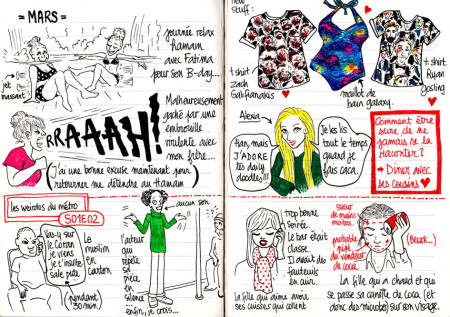 = MARS =
journée relax
hamam
avec Fatima
pour son B-day...
jet
massant
RRAAAH!
Malheureusement
gaché par une
embrouille
virulente avec
mon frère...
(J'ai une bonne excuse maintenant pour
retourner me détendre au Hamam)
les weirdos du métro
S01E02
Vas-y sur
le Coran
je viens
je t'insulte
sale pute
(pendant
30 min.)
Le
muslim
en
carton
aucun son
l'acteur
qui
répète
sa
pièce
en
silence
...enfin, je crois...
new
stuff :
t shirt
Zach
Galifianakis
maillot de
bain galaxy.
t shirt
Ryan
Gosling
Alexia
Han, mais
J'ADORE
tes daily
doodles!!!
Je les lis
tout le temps
quand je
fais caca.
Comment être
sûre de ne
jamais se la
raconter?
→ Diner avec
les cousins
trop bonne
soirée.
le bar était
classe
Il avait des
fauteuils
en cuir.
la fille qui aime avoir
ses cuisses qui collent
sueur
de mains
moites.
probable
pipi
du vendeur
de coca
(Beurk...)
La fille qui a chaud et qui
se passe sa canette de coca (et
donc des microbes) sur son visage.